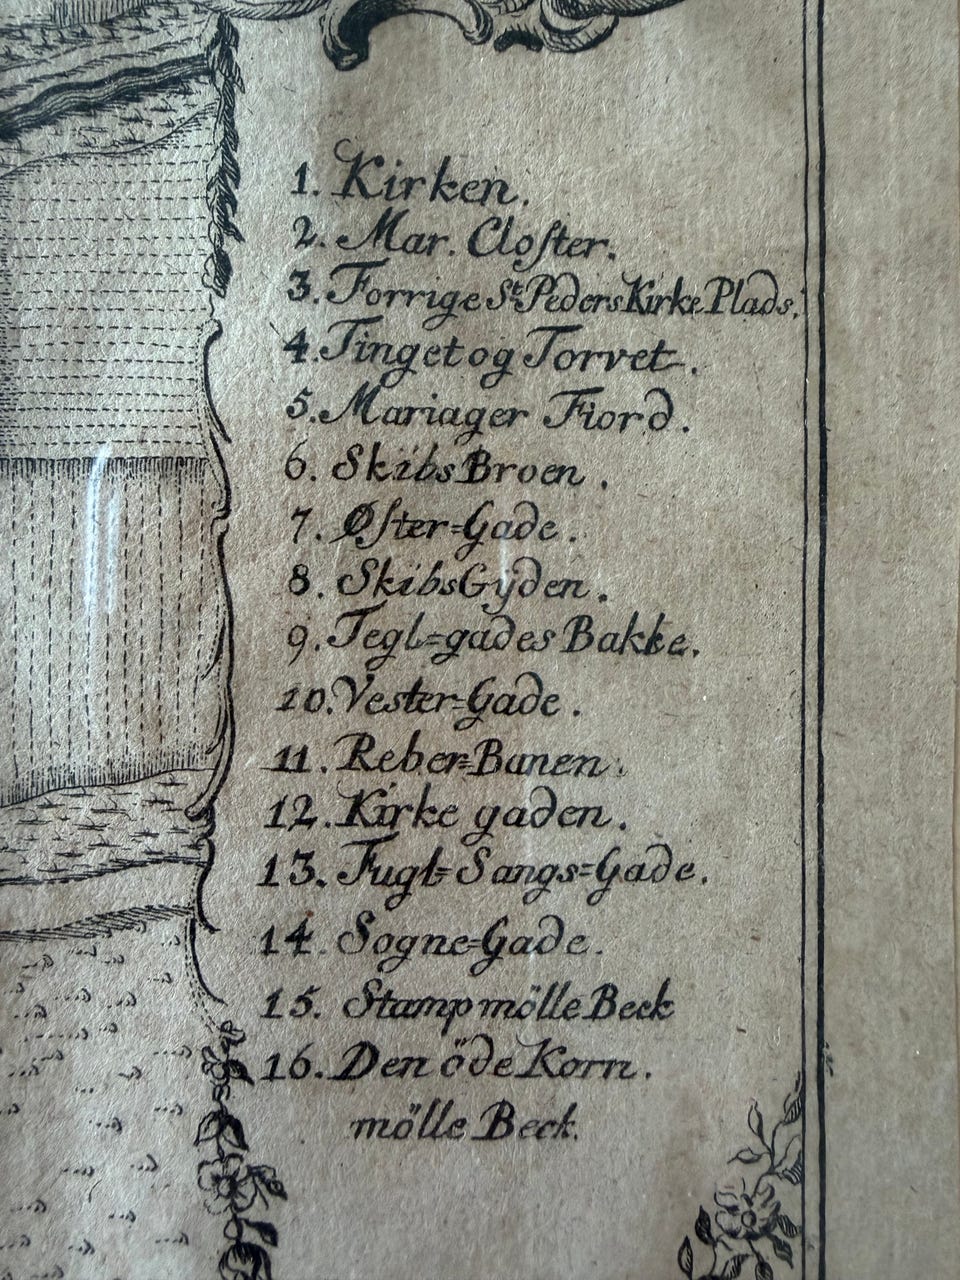 1. Kirken.
2. Mar. Cloſter.
3. Forrige St. Peders Kirke Plads.
4. Tinget og Torvet.
5. Mariager Fiord.
6. Skibs Broen.
7. Øſter=Gade.
8. Skibs Gÿden.
9. Tegl=gades Bakke.
10. Vester=Gade.
11. Reber=Banen.
12. Kirke gaden.
13. Fugl=Sangs=Gade.
14. Sogne=Gade.
15. Stamp mölle Beck
16. Den öde Korn.
mölle Beck.